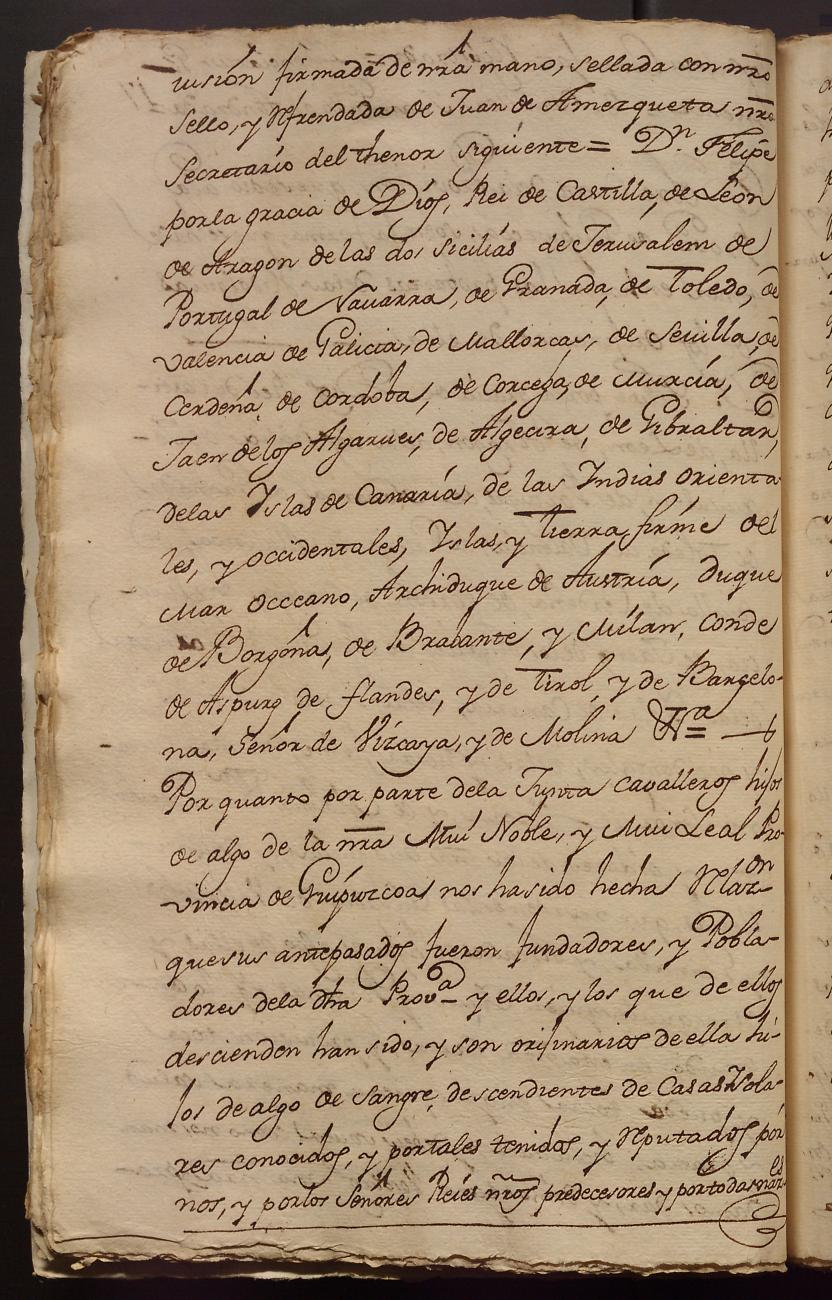 uisión firmada de nr̃a mano, sellada con nr̃o
Sello, y Refrendada de Juan de Amezqueta nr̃o
Secretario del thenor siguiente = Dn. Felipe
por la gracia de Dios, Rei de Castilla, de Leon
de Aragon de las dos Sicilias de Jerusalem de
Portugal de Nauarra, de Granada, de Toledo, de
Valencia de Galicia, de Mallorcas, de Seuilla, de
Cerdeña, de Cordoba, de Corcega, de Murcia, de
Jaen de los Algarues, de Algecira, de Gibraltar,
delas Yslas de Canaria, de las Yndias orienta
les, y occidentales, Yslas, y tierra firme del
Mar Occeano, Archiduque de Austria, duque
de Borgoña, de Brabante, y Milan, conde
de Aspurg de flandes, y de Tirol, y de Barcelo-
na, Señor de Vizcaya, y de Molina &a =
Por quanto por parte dela Junta cavalleros hijos
de algo de la nr̃a Mui Noble, y Mui Leal Pro-
vincia de Guipuzcoa nos ha sido hecha Relazon
que sus antepasados fueron fundadores, y Pobla-
dores dela dha Prova y ellos, y los que de ellos
descienden han sido, y son orijinarios de ella hi-
jos de algo de sangre, descendientes de Casas Ysola-
res conocidos, y por tales tenidos, y Reputados por
nos, y por los Señores Reies nr̃os predecesores y por todas